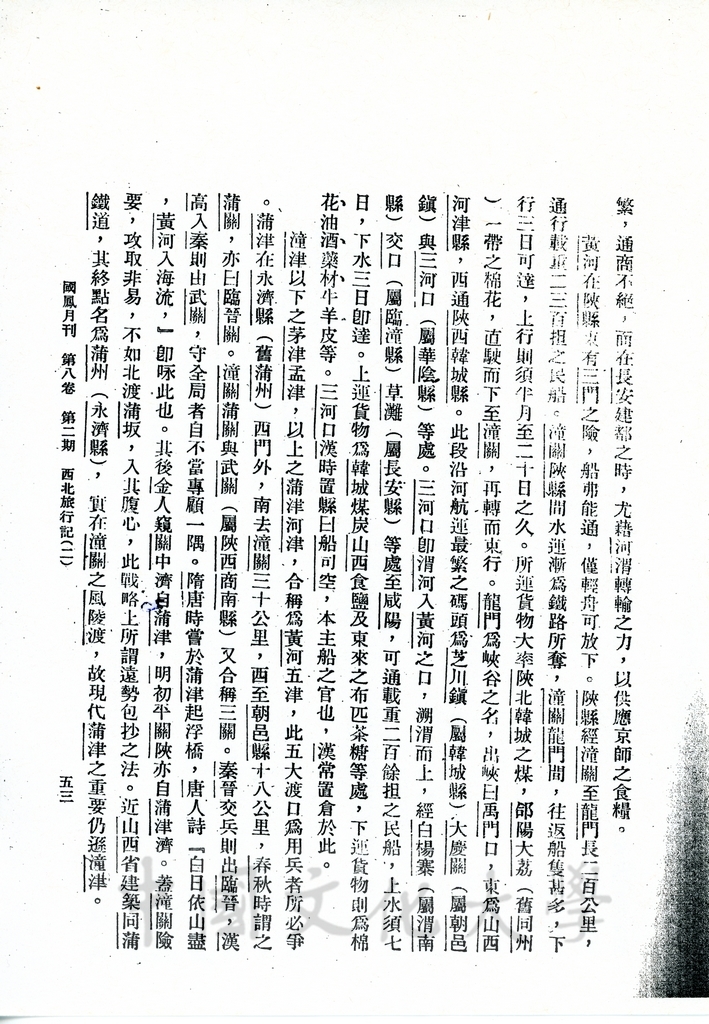 繁，通商不絕，而在長安建都之時，尤藉河渭轉輸之力，以供應京師之食糧。
黃河在陝縣東有三門之險，船弗能通，僅輕舟可放下。陝縣經潼關至龍門長二百公里，
通行載重二三百担之民船。潼關陝縣間水運漸為鐵路所奪，潼關龍門間，往返船隻甚多，下
行三日可達，上行則須半月至二十日之久。所運貨物大率陝北韓城之煤，郃陽大荔（舊同州
）一帶之棉花，直駛而下至潼關，再轉而東行。龍門為峽谷之名，出峽曰禹門口，東為山西
河津縣，西通陝西韓城縣。此段沿河航運最繁之碼頭為芝川鎮（屬韓城縣）大慶關（屬朝邑
鎮）與三河口（屬華陰縣）等處。三河口即渭河入黃河之口，溯渭而上，經白楊寨（屬渭南
縣）交口（屬臨潼縣）草灘（屬長安縣）等處至咸陽，可通載重二百餘担之民船，上水須七
日，下水三日即達。上運貨物為韓城煤炭山西食鹽及東來之布匹茶糖等處，下運貨物則為棉
花油酒藥材牛羊皮等。三河口漢時置縣曰船司空，本主船之官也，漢常置倉於此。
潼津以下之茅津孟津，以上之蒲津河津，合稱為黃河五津，此五大渡口為用兵者所必爭
。蒲津在永濟縣（舊蒲州）西門外，南去潼關三十公里，西至朝邑縣十八公里，春秋時謂之
蒲關，亦曰臨晉關。潼關蒲關與武關（屬陝西商南縣）又合稱三關。秦晉交兵則出臨晉，漢
高入秦則由武關，守全局者自不當專顧一隅。隋唐時嘗於蒲津起浮橋，唐人詩『白日依山盡
，黃河入海流，』即咏此也。其後金人窺關中濟自蒲津，明初平關陝亦自蒲津濟。蓋潼關險
要，攻取非易，不如北渡蒲坂，入其腹心，此戰略上所謂遠勢包抄之法。近山西省建築同蒲
鐵道，其終點名為蒲州（永濟縣），實在潼關之風陵渡，故現代蒲津之重要仍遜潼津。
國風月刊　第八卷　第二期　西北旅行記（二）
五三
中國文化大學